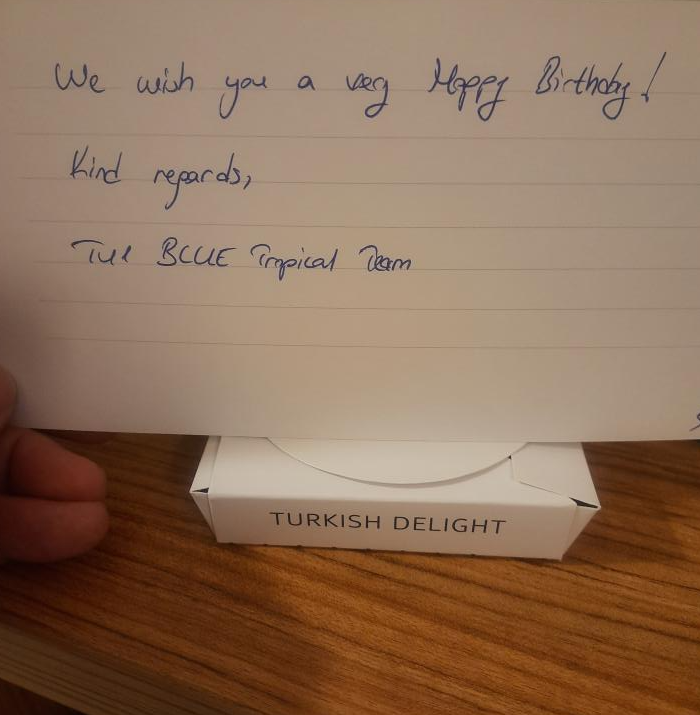 We wish you a very Happy Birthday!
Kind regards,
THE BLUE Tropical Team
TURKISH DELIGHT